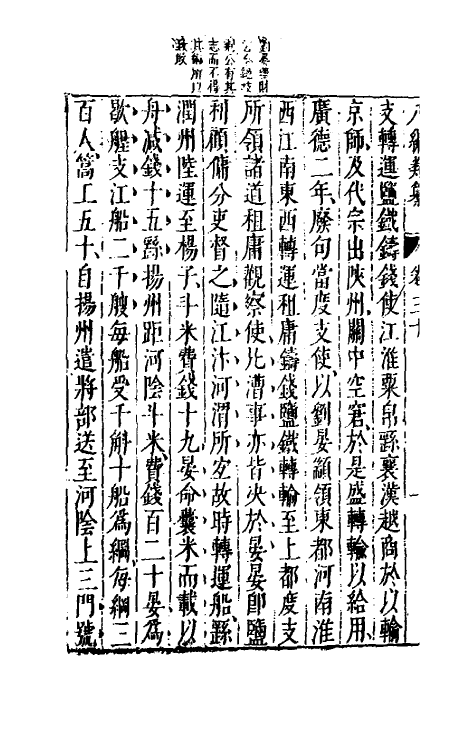 八編類纂 卷三十
支轉運鹽鐵鑄錢使江淮粟帛繇襄漢越商於以輸
京師及代宗出陝州關中空窘於是盛轉輸以給用
廣德二年廢句當度支使以劉晏顓領東都河南淮
西江南東西轉運租庸鑄錢鹽鐵轉輸至上都度支
所領諸道租庸觀察使凡漕事亦皆決於晏晏卽鹽
利顧傭分吏督之隨江汴河渭所宜故時轉運船繇
潤州陸運至楊子斗米費錢十九晏命囊米而載以
舟减錢十五繇揚州距河陰斗米費錢百二十晏爲
歇艎支江船二千艘每船受千斛十船爲綱每綱三
百人篙工五十自揚州遣將部送至河陰上三門號